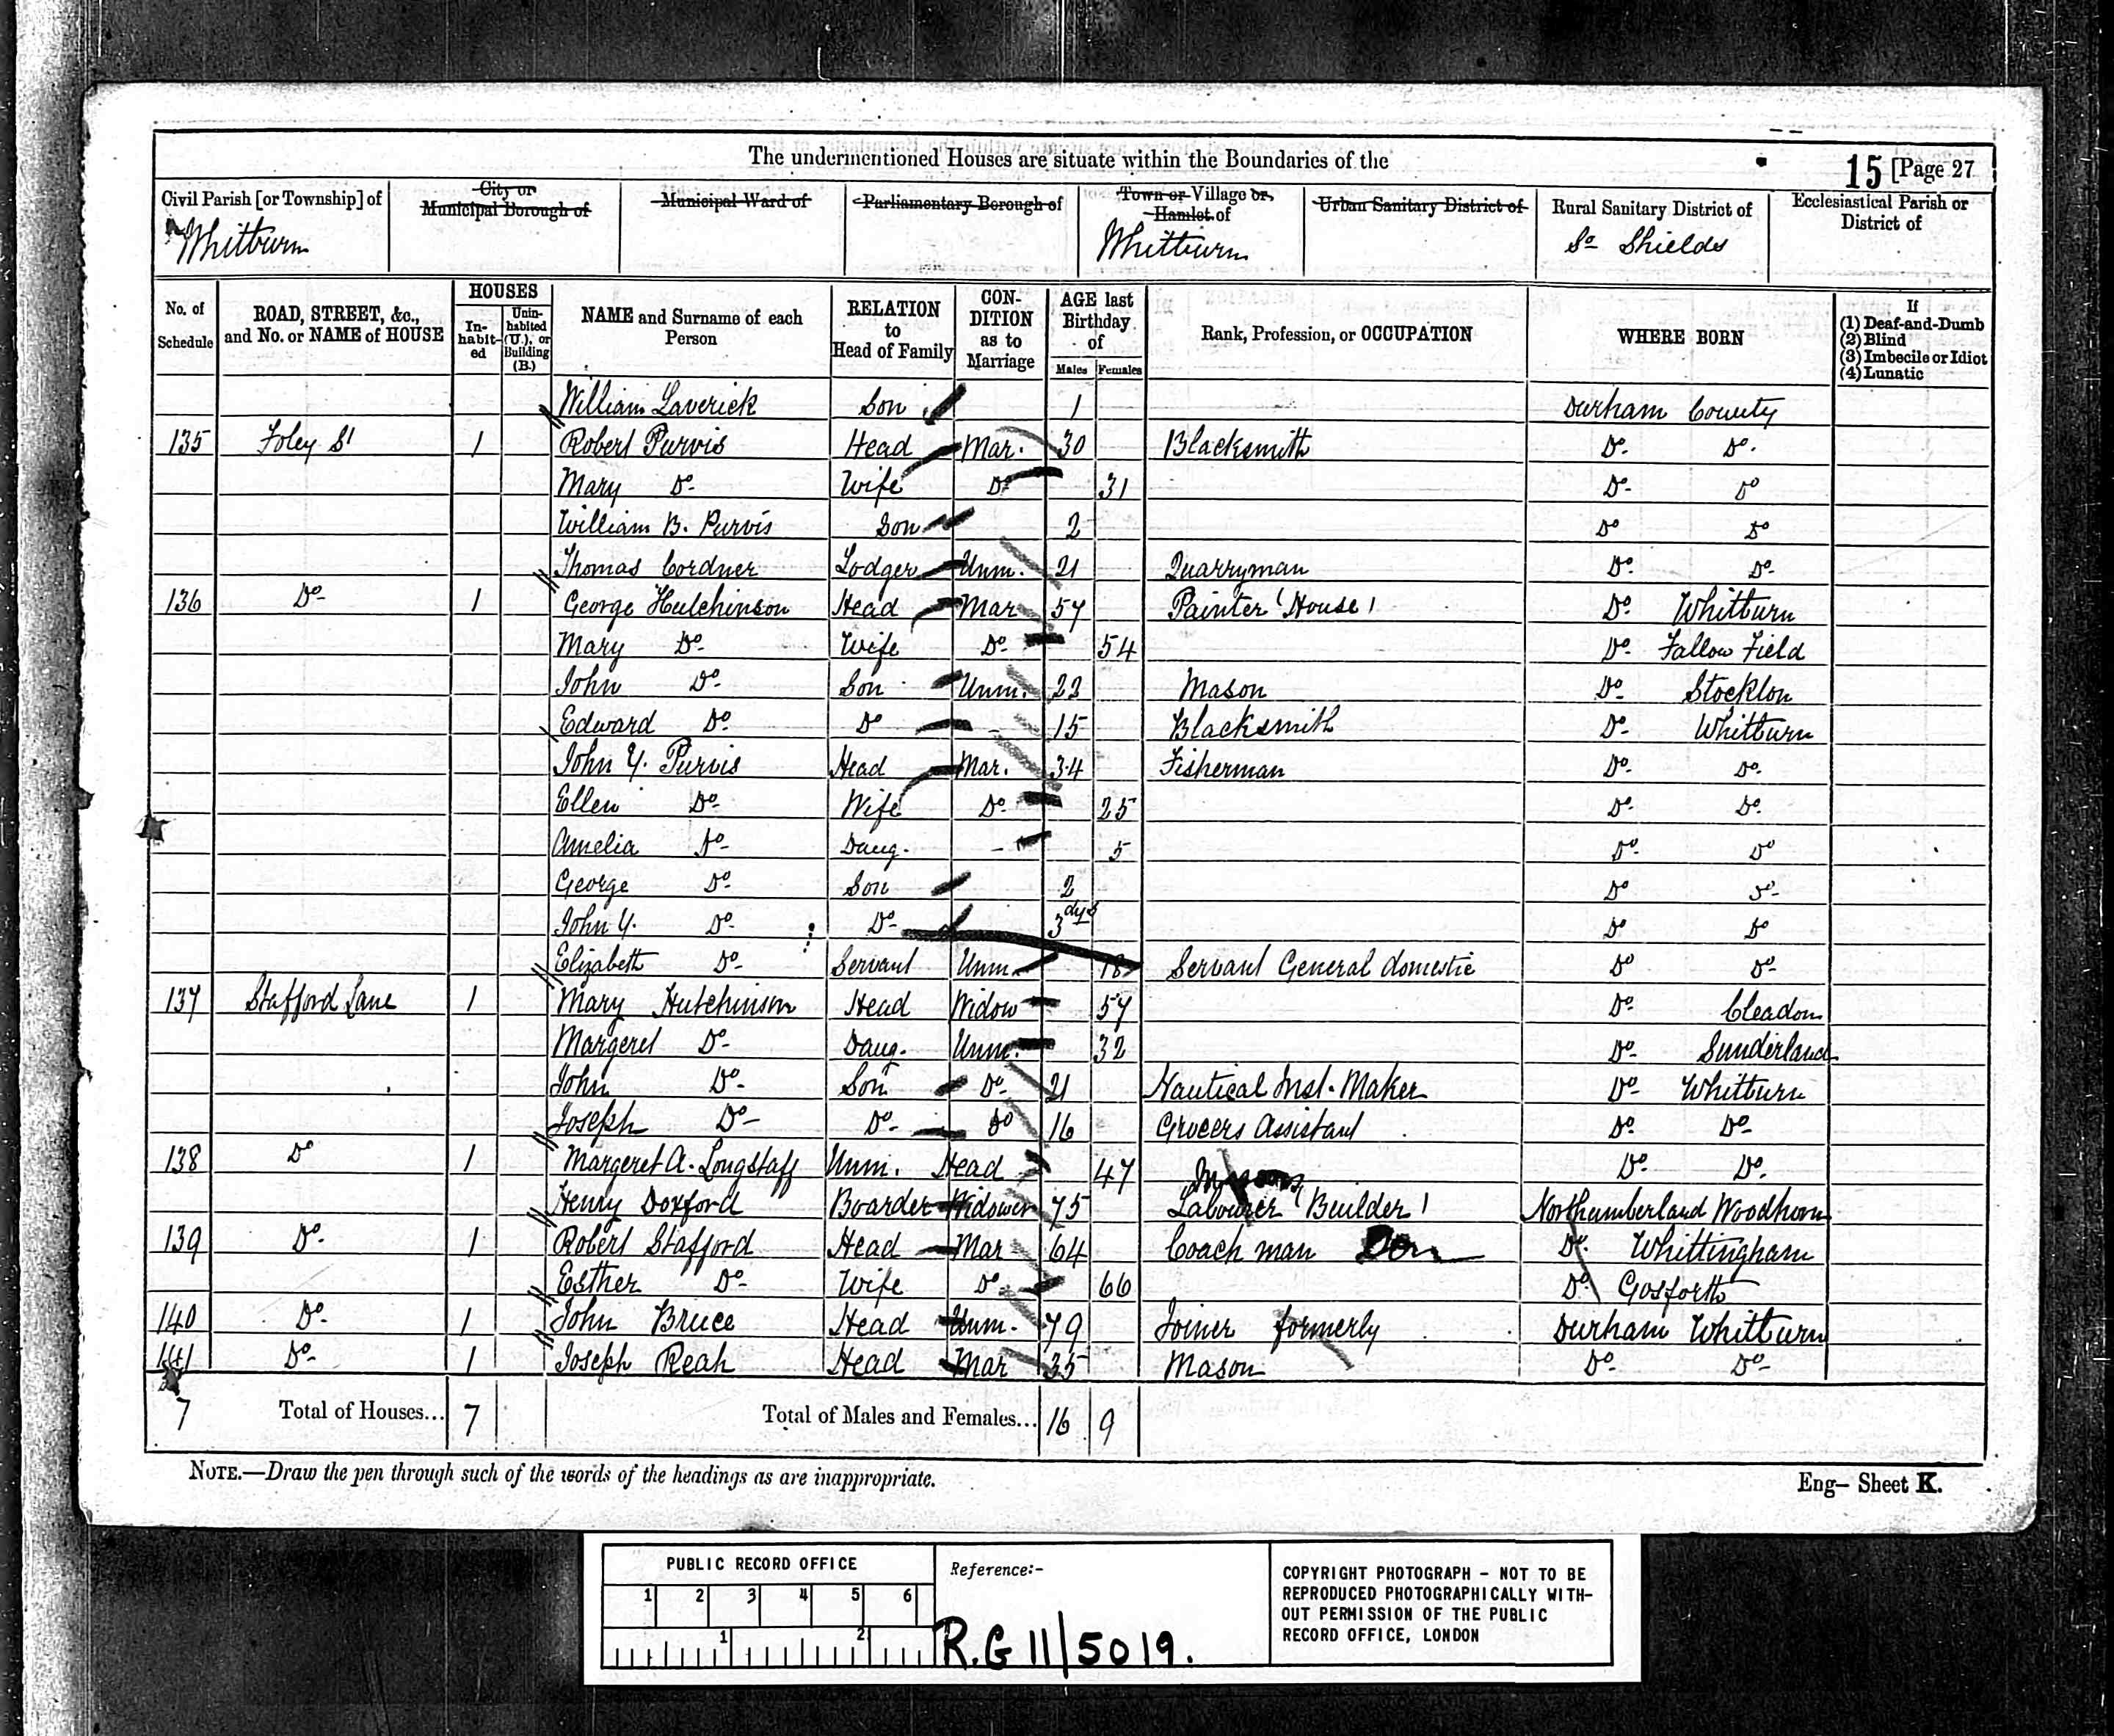 The undermentioned Houses are situate within the Boundaries of the
15 [Page 27
Civil Parish [or Township] of Whitburn
City or Municipal Borough of
Municipal Ward of
Parliamentary Borough of
Town or Village or Hamlet of Whitburn
Urban Sanitary District of
Rural Sanitary District of So Shields
Ecclesiastical Parish or District of
No. of Schedule
ROAD, STREET, &c., and No. or NAME of HOUSE
HOUSES
Inhabited
Uninhabited (U.), or Building (B.)
NAME and Surname of each Person
RELATION to Head of Family
CONDITION as to Marriage
AGE last Birthday of
Males Females
Rank, Profession, or OCCUPATION
WHERE BORN
If
(1) Deaf-and-Dumb
(2) Blind
(3) Imbecile or Idiot
(4) Lunatic
William Laverick Son 1 Durham County
135 Foley St 1 Robert Purvis Head Mar. 30 Blacksmith Do. Do.
Mary Do Wife Do 31 Do Do
William B. Purvis Son 2 Do Do
Thomas Cordner Lodger Unm. 21 Quarryman Do. Do.
136 Do 1 George Hutchinson Head Mar 57 Painter (House) Do. Whitburn
Mary Do Wife Do 54 Do. Fallow Field
John Do Son Unm. 22 Mason Do Stockton
Edward Do Do 15 Blacksmith Do Whitburn
John Y. Purvis Head Mar. 34 Fisherman Do. Do.
Ellen Do Wife Do 25 Do. Do.
Amelia Do Daug. 5 Do. Do
George Do Son 2 Do Do
John Y. Do Do 3 dys Do Do
Elizabeth Do Servant Unm 18 Servant General domestic Do Do
137 Stafford Lane 1 Mary Hutchinson Head Widow 57 Do. Cleadon
Margeret Do Daug. Unm. 32 Do Sunderland
John Do Son Do 21 Nautical Inst. Maker Do Whitburn
Joseph Do Do. Do 16 Grocers Assistant Do. Do
138 Do 1 Margeret A. Longstaff Unm. Head 47 Do. Do.
Henry Doxford Boarder Widower 75 Labourer (Builder) Northumberland Woodhorn
139 Do. 1 Robert Stafford Head Mar 64 Coach man Dom Do. Whittingham
Esther Do Wife Do. 60 Do. Gosforth
140 Do. 1 John Bruce Head Unm. 79 Joiner formerly Durham Whitburn
141 Do 1 Joseph Reah Head Mar 35 Mason Do. Do
7 Total of Houses... 7 Total of Males and Females... 16 9
NOTE.—Draw the pen through such of the words of the headings as are inappropriate.
Eng— Sheet K.
PUBLIC RECORD OFFICE
1 2 3 4 5 6
1 2
Reference:-
R.G 11/5019.
COPYRIGHT PHOTOGRAPH - NOT TO BE
REPRODUCED PHOTOGRAPHICALLY WITH-
OUT PERMISSION OF THE PUBLIC
RECORD OFFICE, LONDON